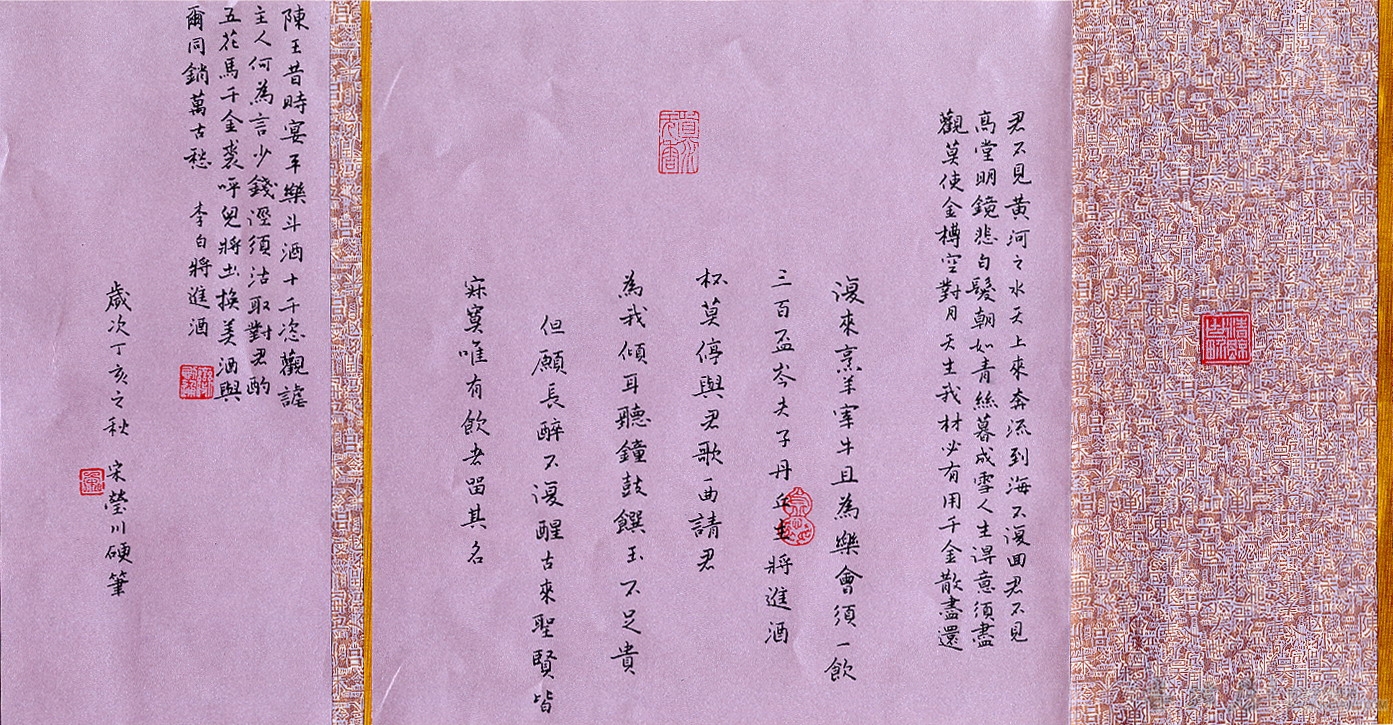 君不見黃河之水天上來奔流到海不復回君不見
高堂明鏡悲白髮朝如青絲暮成雪人生得意須盡
觀莫使金樽空對月天生我材必有用千金散盡還
復來烹羊宰牛且為樂會須一飲
三百盃岑夫子丹丘生將進酒
杯莫停與君歌一曲請君
為我傾耳聽鐘鼓饌玉不足貴
但願長醉不復醒古來聖賢皆
寂寞唯有飲者留其名
陳王昔時宴平樂斗酒十千恣觀謔
主人何為言少錢徑須沽取對君酌
五花馬千金裘呼兒將出換美酒與
爾同銷萬古愁 李白將進酒
歲次丁亥之秋 宋瑩川硬筆